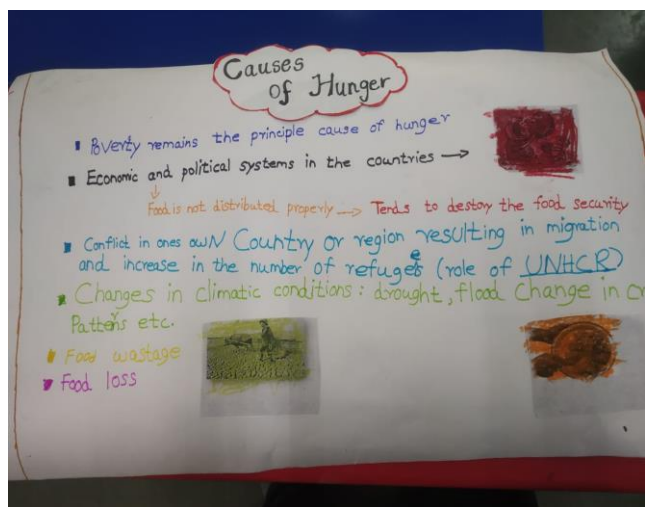 Causes
of Hunger
Poverty remains the principle cause of hunger
Economic and political systems in the countries →
↓
Food is not distributed properly → Tends to destoy the food security
Conflict in ones owN Country or region resulting in migration
and increase in the number of refugees (role of UNHCR)
Changes in climatic conditions : drought, flood Change in cr
Patterns etc.
Food wastage
Food loss